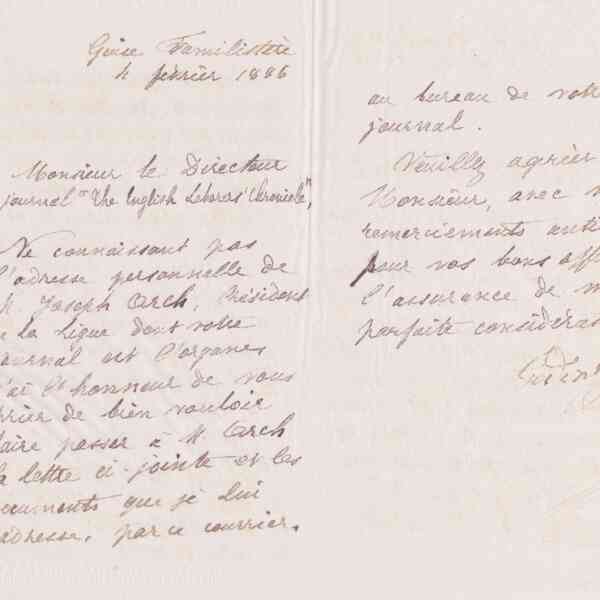 Guise Familistère
4 février 1886
Monsieur le Directeur
journal "The English Laborers' Chronicle",
Ne connaissant pas
l'adresse personnelle de
M. Joseph Arch, Président
de la Ligue dont votre
journal est l'organe,
j'ai l'honneur de vous
prier de bien vouloir
faire passer à M. Arch
la lettre ci-jointe et les
documents que je lui
adresse, par ce courrier,
au bureau de votre
journal.
Veuillez agréer
Monsieur, avec
remerciements anti
pour vos bons offi
l'assurance de m
parfaite considérat